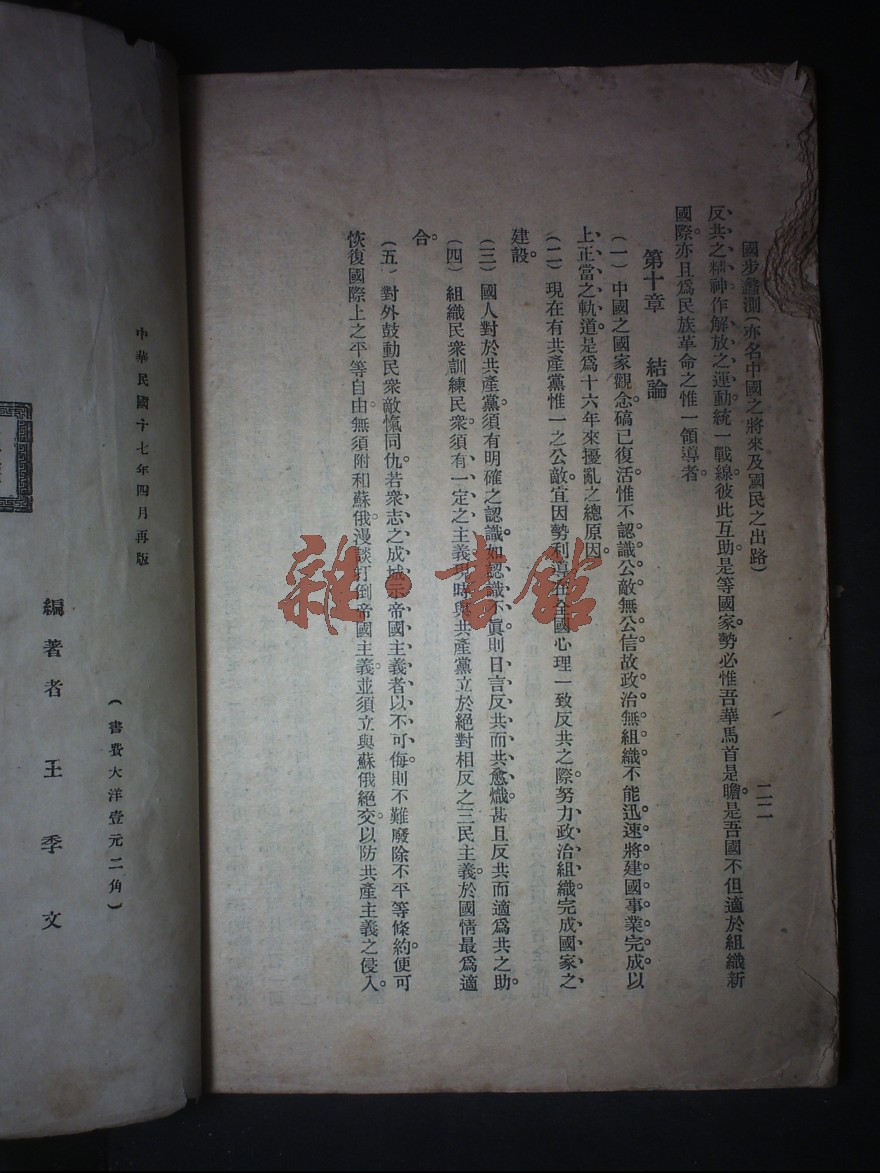 國步蠡測(亦名中國之將來及國民之出路)
二二
反共之精神作解放之運動統一戰線彼此互助是等國家勢必惟吾華馬首是瞻是吾國不但適於組織新
國際亦且爲民族革命之惟一領導者
第十章 結論
(一)中國之國家觀念碻已復活惟不認識公敵無公信故政治無組織不能迅速將建國事業完成以
上正當之軌道是爲十六年來擾亂之總原因
(二)現在有共產黨惟一之公敵宜因勢利導在全國心理一致反共之際努力政治組織完成國家之
建設。
(三)國人對於共產黨須有明確之認識如認識不眞則日言反共而共愈熾甚且反共而適爲共之助
(四)組織民衆訓練民衆須有一定之主義現時與共產黨立於絕對相反之三民主義於國情最爲適
合。
(五)對外鼓動民衆敵愾同仇若衆志之成城示帝國主義者以不可侮則不難廢除不平等條約便可
恢復國際上之平等自由無須附和蘇俄漫談打倒帝國主義並須立與蘇俄絕交以防共產主義之侵入。
中華民國十七年四月再版
(書費大洋壹元二角)
編著者 王季文
雜·書館